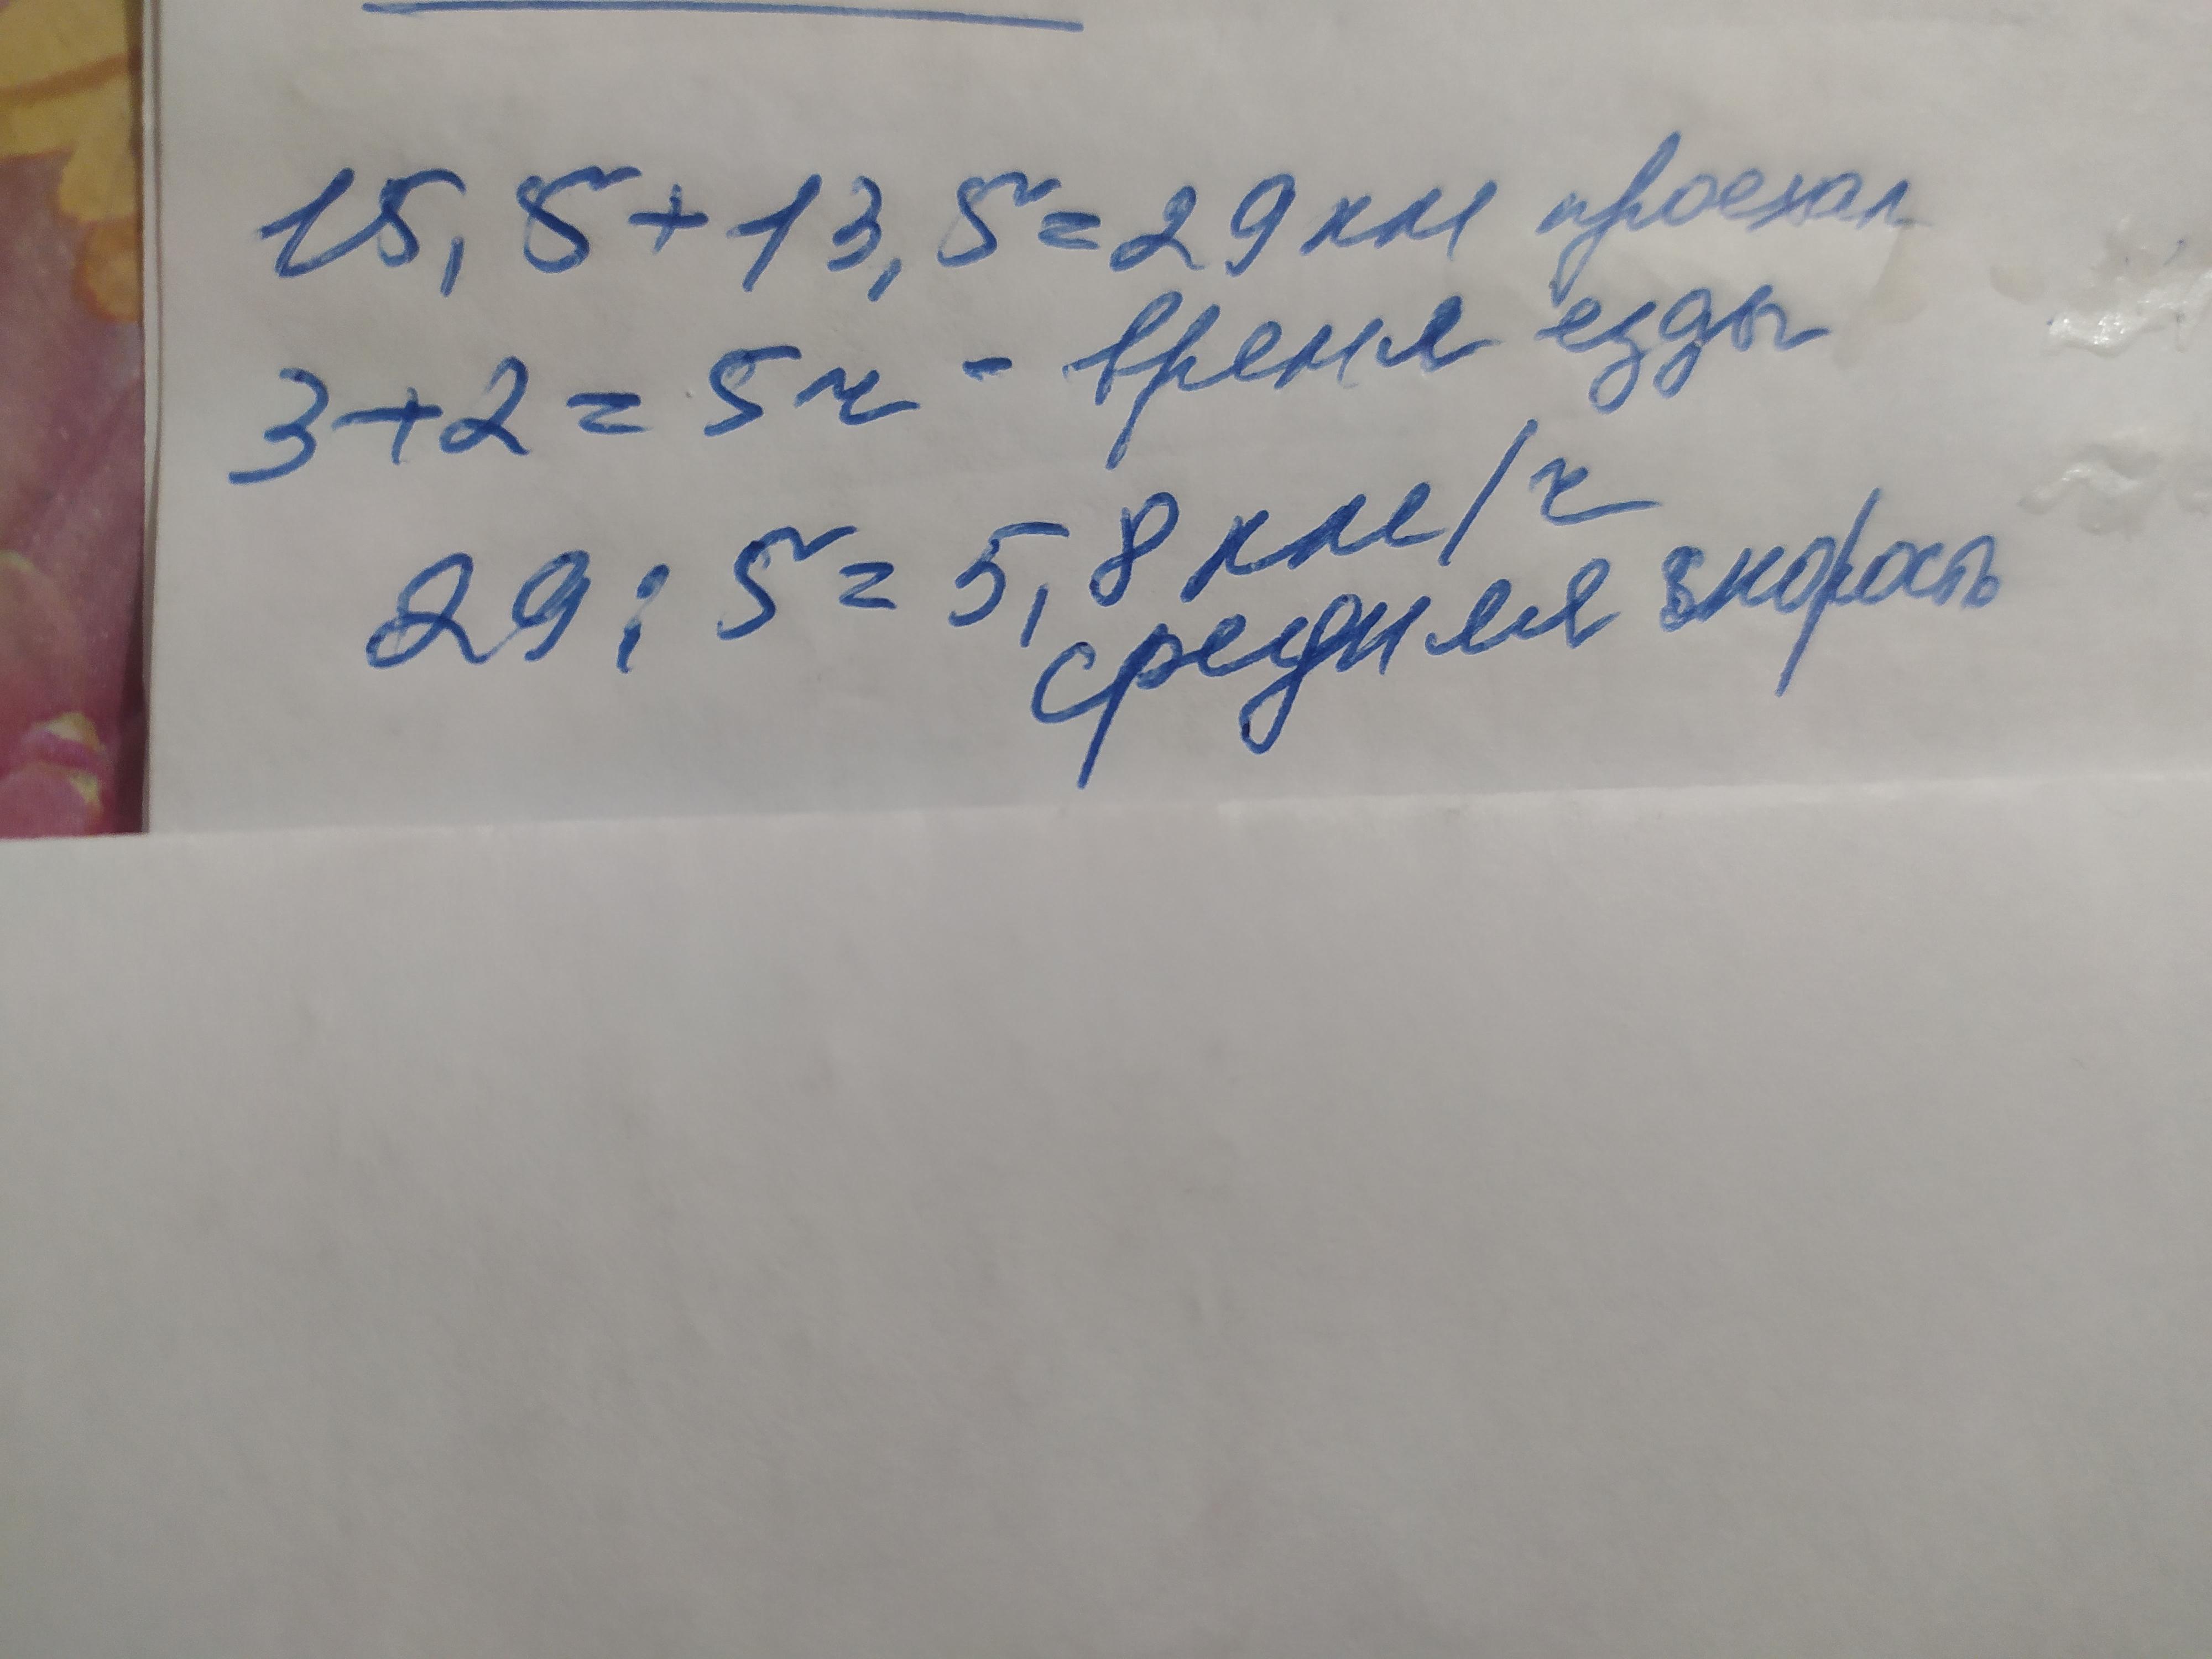 15,5+13,5=29 км проехал
3+2=5ч - время езды
29:5=5,8 км/ч
средняя скорость